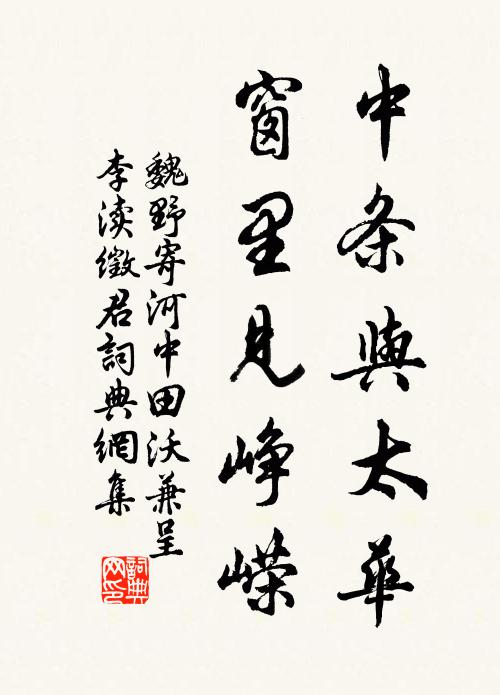 中条與太華
窗里見峥嵘
魏野寄河中田沃兼呈
李渎徵君詞典網集
詞典网印